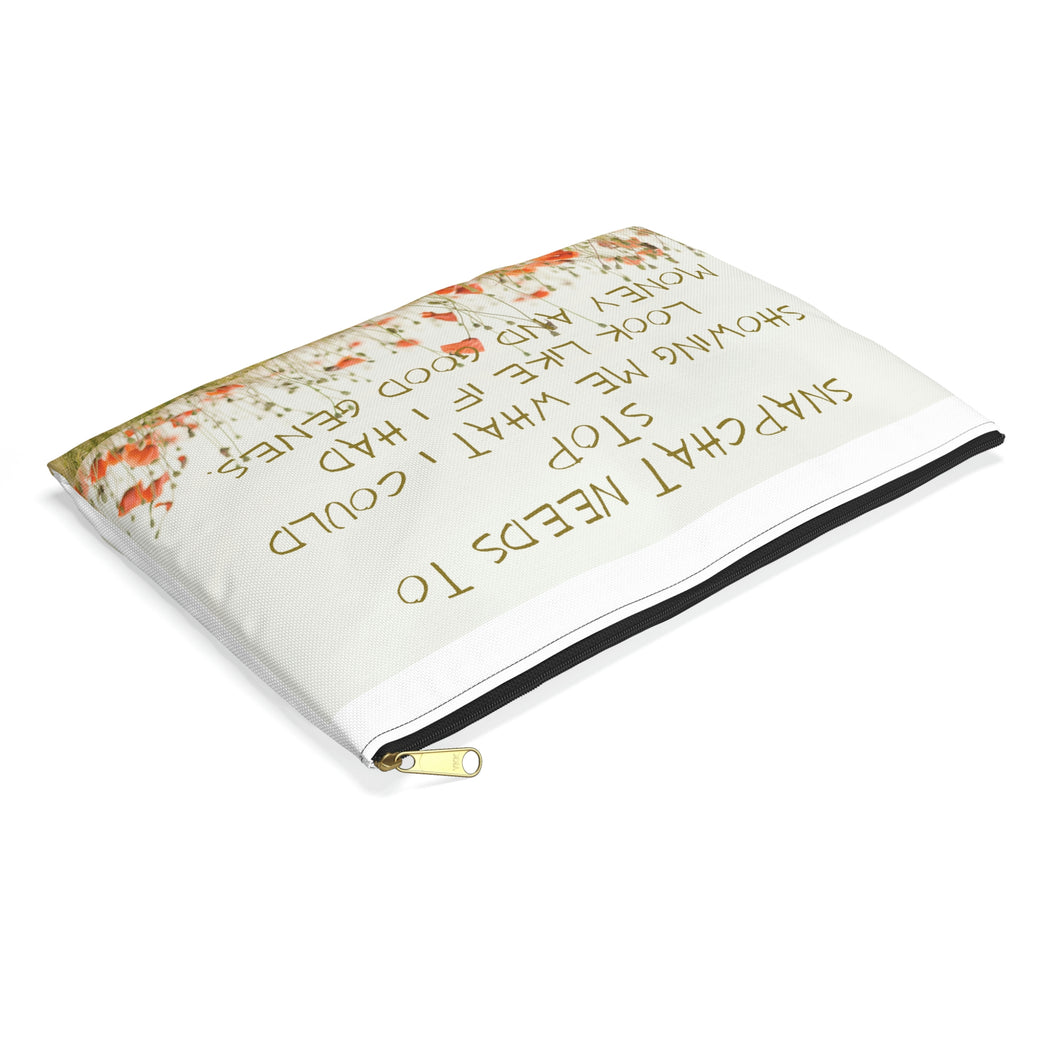 SNAPCHAT NEEDS TO
STOP
SHOWING ME WHAT I COULD
LOOK LIKE IF I HAD
MONEY AND GOOD GENES.